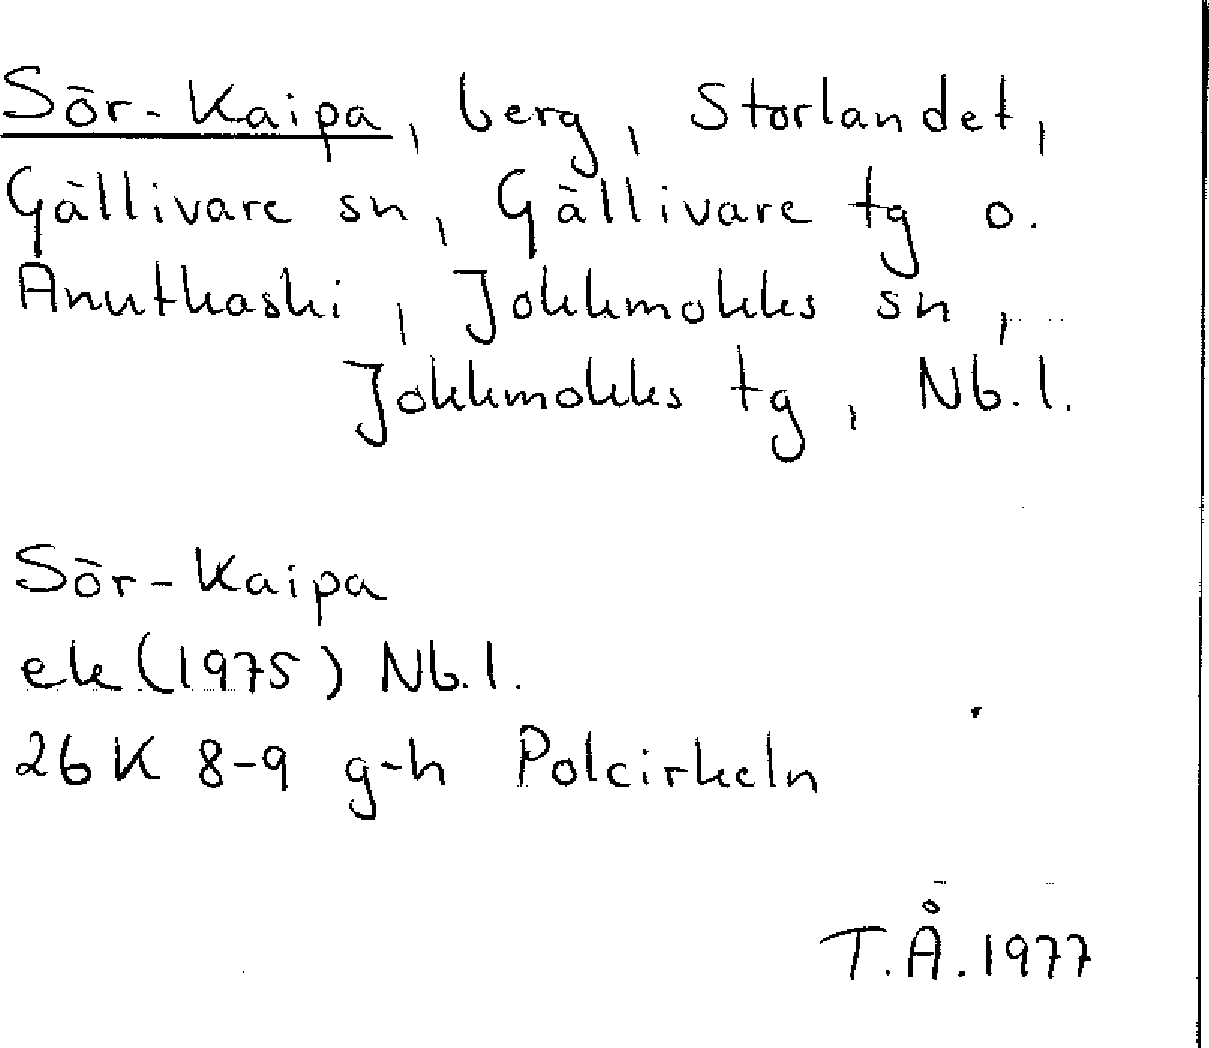 Sör-Kaipa, berg, Storlandet,
Gällivare sn, Gällivare tg o.
Anutkaski, Jokkmokks sn,
Jokkmokks tg, Nb.l.
Sör-Kaipa
ek (1975) Nb.l.
26K 8-9 g-h Polcirkeln
T.Å. 1977